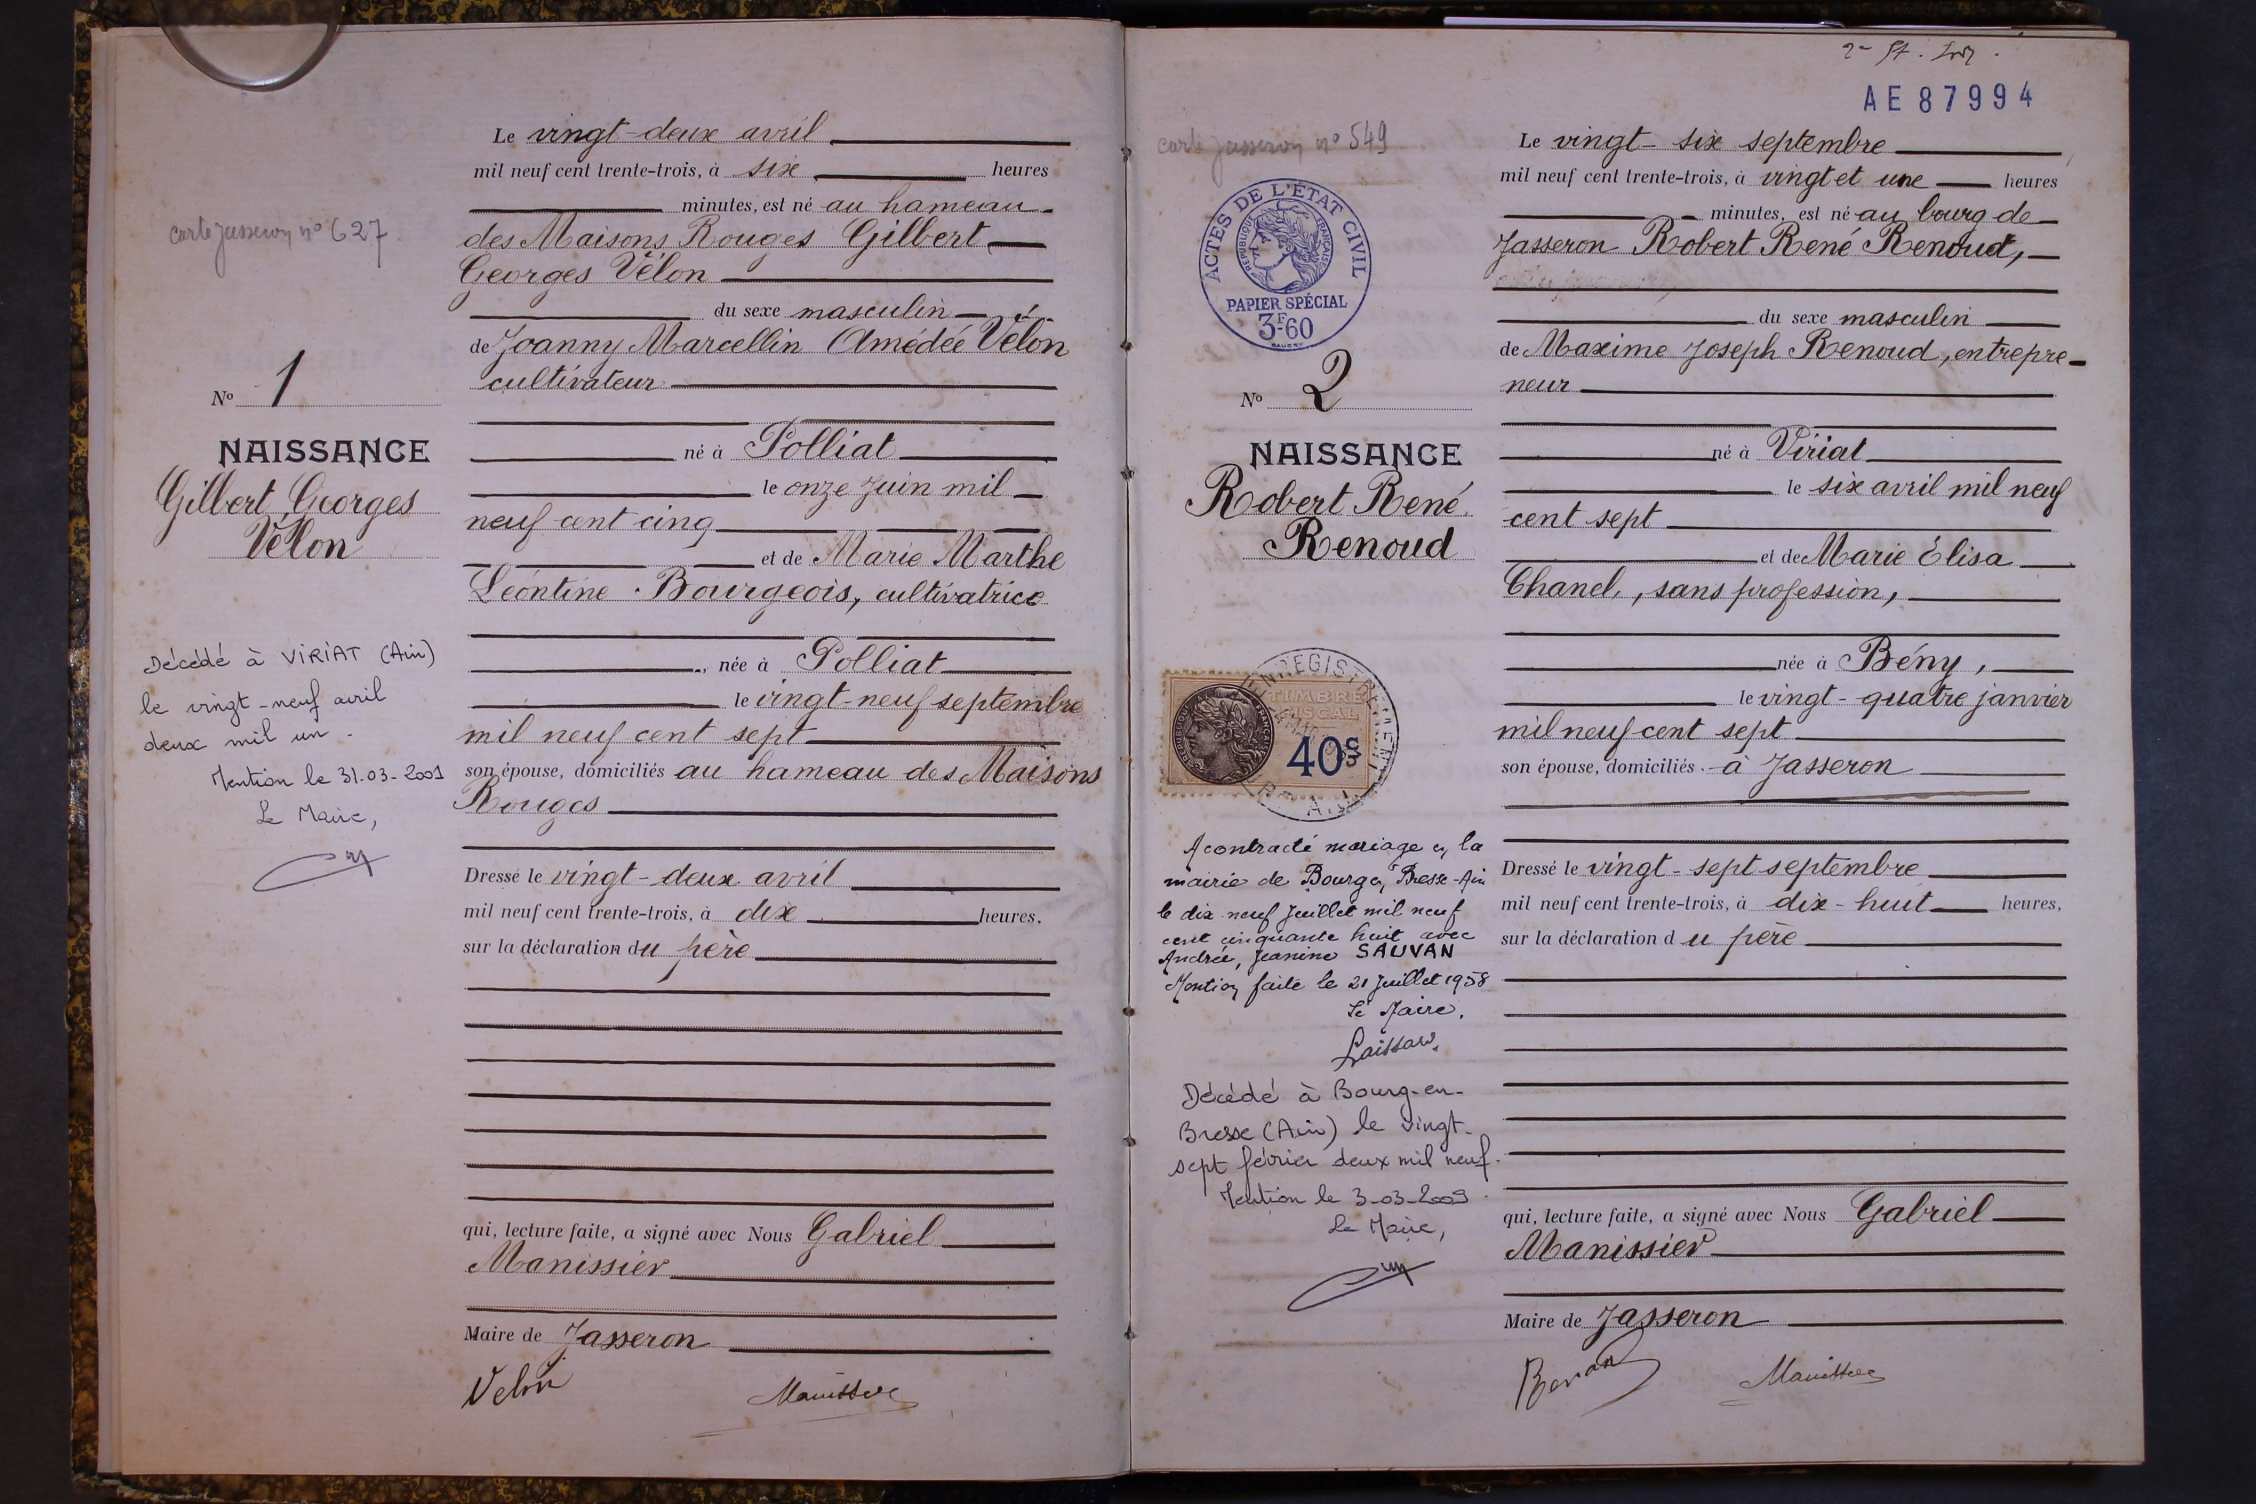 carte Jasseron nº 627
Nº 1
NAISSANCE
Gilbert Georges
Vélon
Décédé à VIRIAT (Ain)
le vingt-neuf avril
deux mil un.
Mention le 31-03-2001
Le Maire,
Le vingt-deux avril
mil neuf cent trente-trois, à six heures
minutes, est né au hameau
des Maisons Rouges Gilbert
Georges Vélon
du sexe masculin
de Joanny Marcellin Amédée Vélon
cultivateur
né à Polliat
le onze juin mil
neuf cent cinq
et de Marie Marthe
Léontine Bourgeois, cultivatrice
, née à Polliat
le vingt-neuf septembre
mil neuf cent sept
son épouse, domiciliés au hameau des Maisons
Rouges
Dressé le vingt-deux avril
mil neuf cent trente-trois, à dix heures.
sur la déclaration du père
qui, lecture faite, a signé avec Nous Gabriel
Manissier
Maire de Jasseron
Velon
Manissier
AE 87994
carte Jasseron nº 549
ACTES DE L'ÉTAT CIVIL
RÉPUBLIQUE FRANÇAISE
PAPIER SPÉCIAL
3F-60
Nº 2
NAISSANCE
Robert René
Renoud
ENREGISTREMENT
TIMBRE
FISCAL
40
A contracté mariage en la
mairie de Bourg en Bresse-Ain
le dix neuf Juillet mil neuf
cent cinquante huit avec
Andrée, Jeanine SAUVAN
Mention faite le 21 Juillet 1958
Le Maire.
Décédé à Bourg-en-
Bresse (Ain) le vingt-
sept février deux mil neuf.
Mention le 3-03-2009.
Le Maire,
Le vingt-six septembre
mil neuf cent trente-trois, à vingt et une heures
minutes, est né au bourg de
Jasseron Robert René Renoud,
du sexe masculin
de Maxime Joseph Renoud, entrepre-
neur
né à Viriat
le six avril mil neuf
cent sept
et de Marie Élisa
Chanel, sans profession,
née à Bény,
le vingt-quatre janvier
mil neuf cent sept
son épouse, domiciliés à Jasseron
Dressé le vingt-sept septembre
mil neuf cent trente-trois, à dix-huit heures,
sur la déclaration du père
qui, lecture faite, a signé avec Nous Gabriel
Manissier
Maire de Jasseron
Manissier